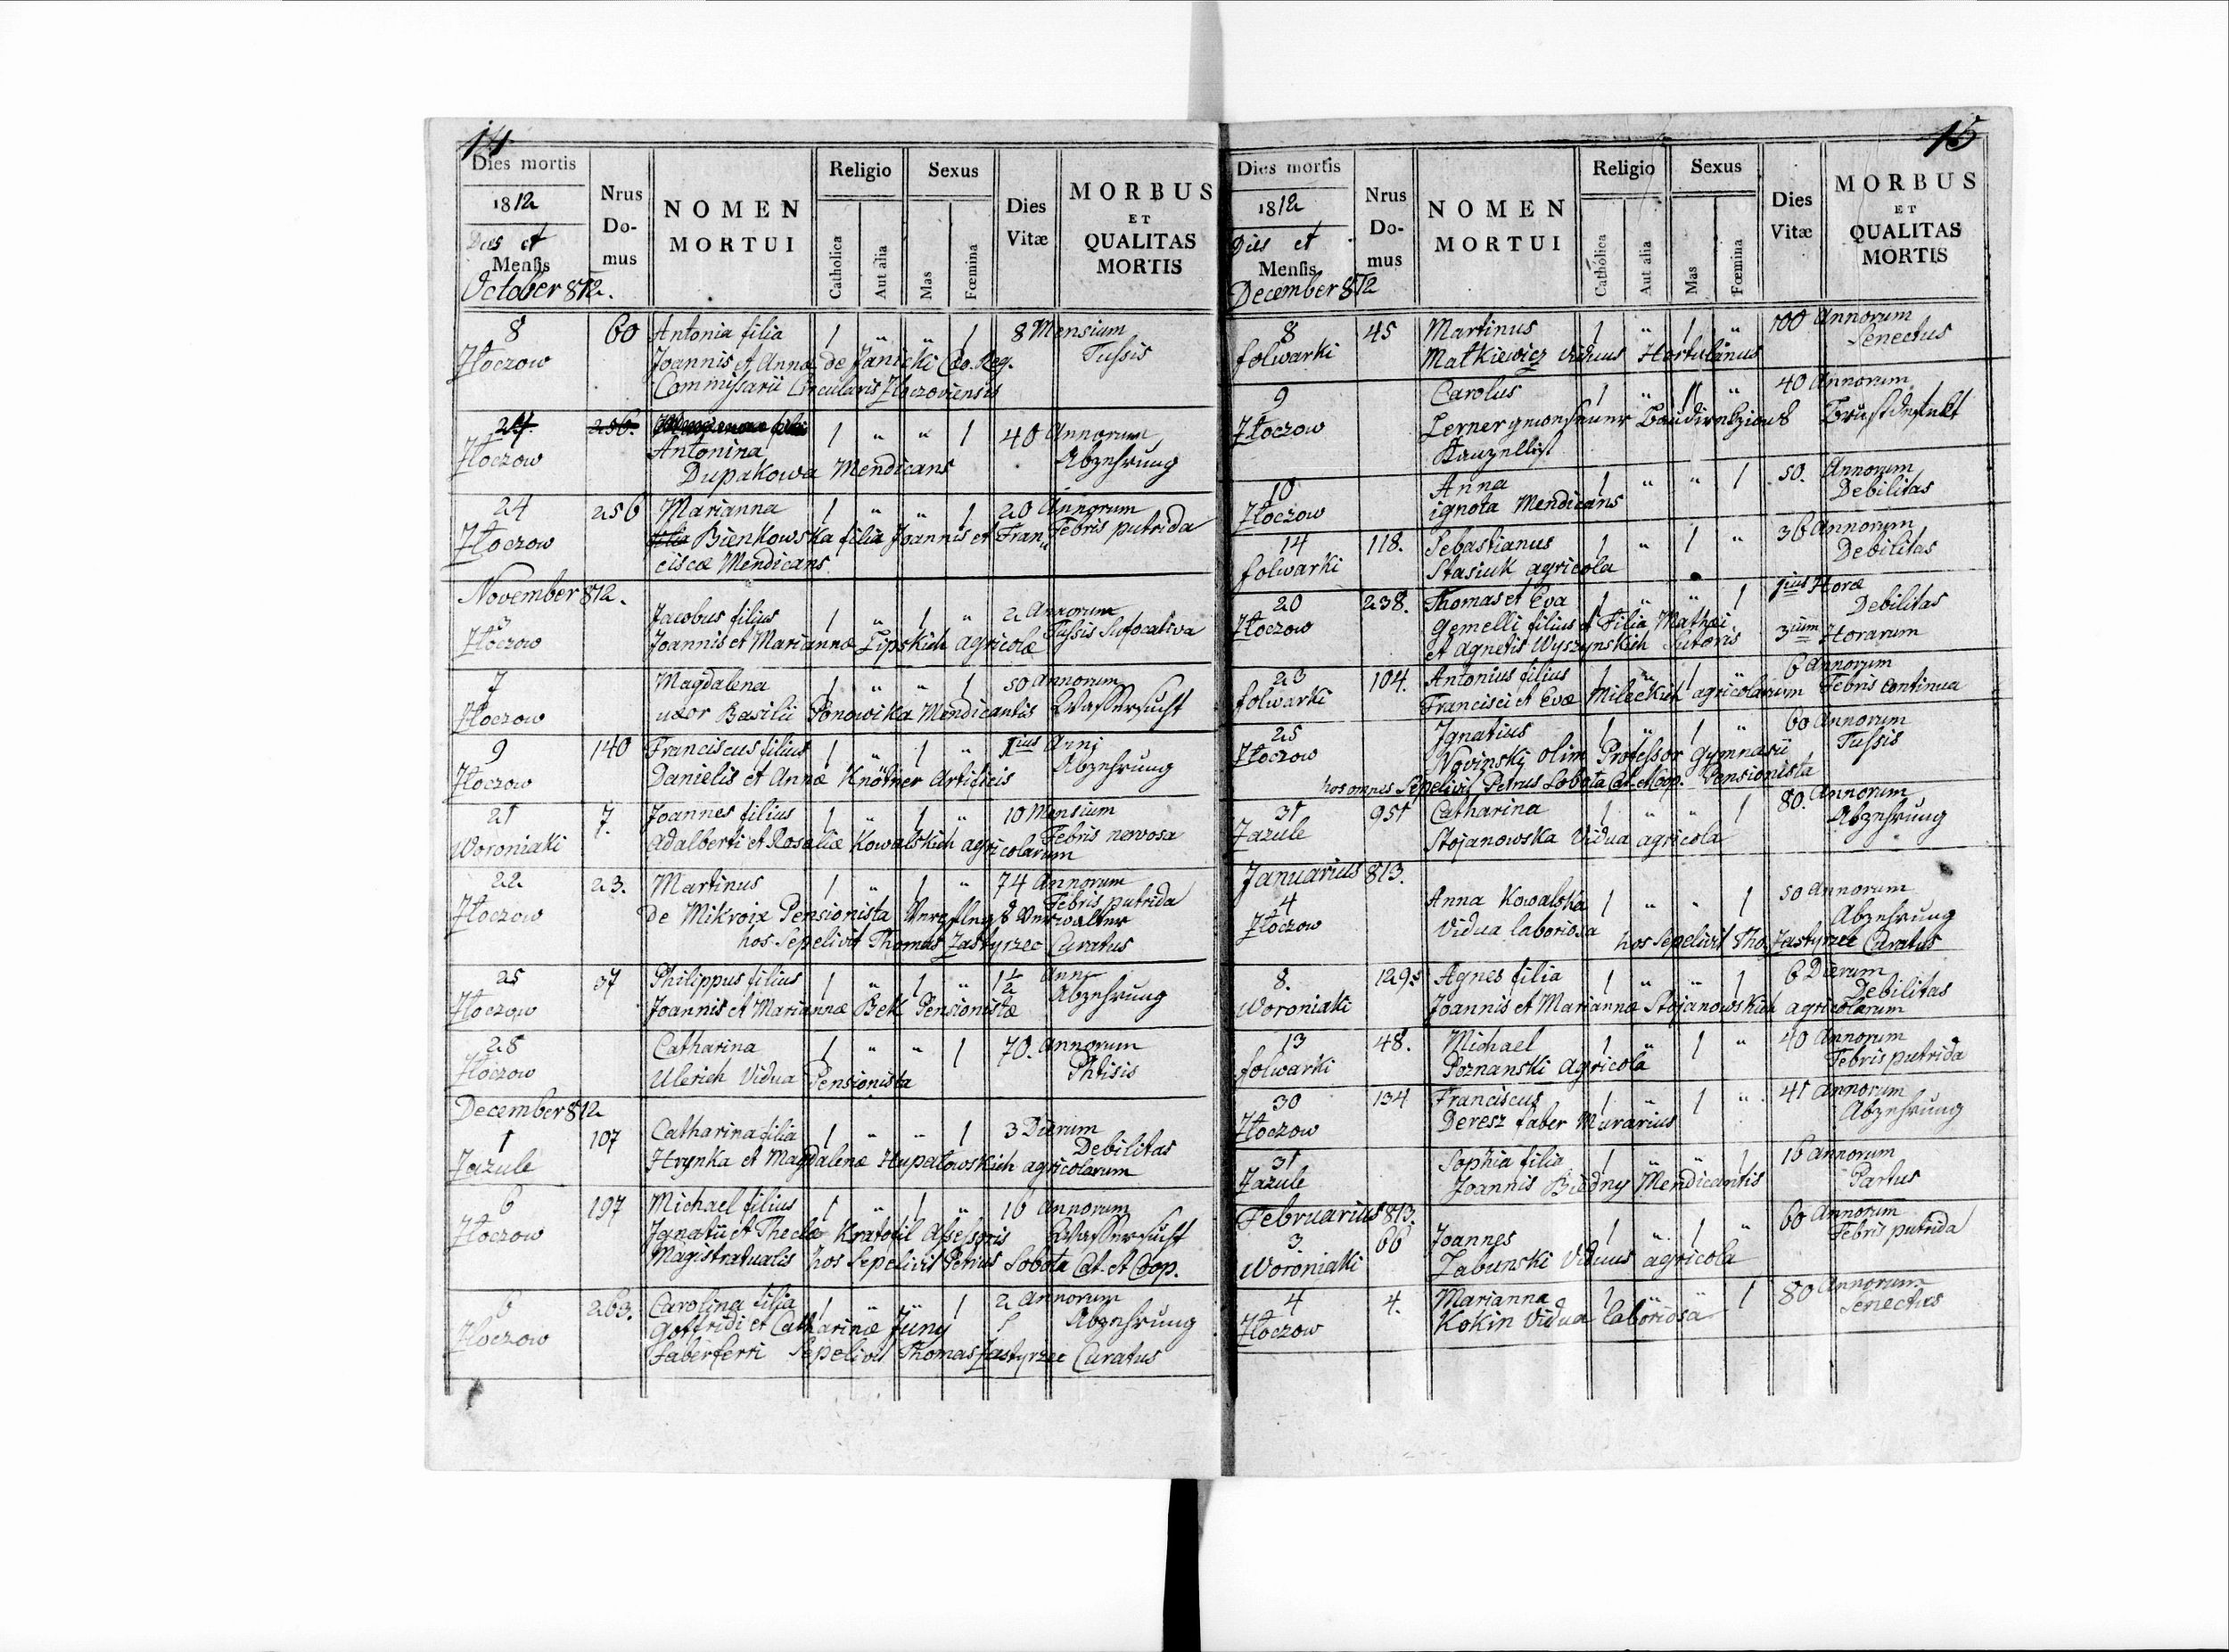 14
Dies mortis
1812
Dies et
Mensis
October 812.
Nrus Do-mus
NOMEN MORTUI
Religio
Catholica
Aut alia
Sexus
Mas
Fœmina
Dies Vitæ
MORBUS ET QUALITAS MORTIS
8 60 Antonia filia 1 " " 1 8 Mensium
Złoczow Joannis et Annæ de Janicki Cæo. Reg. Tussis
Commissarii Circularis Złoczoviensis
24. 256. 1 " " 1 40 Annorum
Złoczow Antonina Abzehrung
Dupakowa Mendicans
24 256 Marianna 1 " " 1 20 Annorum
Złoczow filia Bienkowska filia Joannis et Fran„ Febris putrida
ciscæ Mendicans
November 812.
3 Jacobus filius 1 " 1 " 2 Annorum
Złoczow Joannis et Mariannæ Lipskich Agricolæ Tussis Sufocativa
7 Magdalena 1 " " 1 50 Annorum
Złoczow uxor Basilii Ponowika Mendicantis Wassersucht
9 140 Franciscus filius 1 " 1 " 1ius Anni
Złoczow Danielis et Annæ Knötner Artificis Abzehrung
21 7. Joannes filius 1 " 1 " 10 Mensium
Woroniaki Adalberti et Rosaliæ Kowalskich agricolarum Febris nervosa
22 23. Martinus 1 " 1 " 74 Annorum
Złoczow De Mikroix Pensionista Verpflegs Verwalter Febris putrida
hos Sepelivit Thomas Zastyrzec Curatus
25 37 Philippus filius 1 " 1 " 1½ Anni
Złoczow Joannis et Mariannæ Bek Pensionistæ Abzehrung
28 Catharina 1 " " 1 70. Annorum
Złoczow Ulerich Vidua Pensionista Phtisis
December 812
1 107 Catharina filia 1 " " 1 3 Dierum
Jazule Hrynka et Magdalenæ Hupałowskich agricolarum Debilitas
6 197 Michael filius 1 " 1 " 16 Annorum
Złoczow Ignatii et Theclæ Kratofil Assessoris Wassersucht
Magistratualis hos Sepelivit Petrus Sobota Cat. et Coop.
6 263. Carolina filia 1 " " 1 2 Annorum
Złoczow Gotfridi et Catharinæ Juny Abzehrung
Faberferri Sepelivit Thomas Zastyrzec Curatus
15
Dies mortis
1812
Dies et
Mensis
December 812
Nrus Do-mus
NOMEN MORTUI
Religio
Catholica
Aut alia
Sexus
Mas
Fœmina
Dies Vitæ
MORBUS ET QUALITAS MORTIS
8 45 Martinus 1 " 1 " 100 Annorum
folwarki Matkiewicz viduus Hortulanus Senectus
9 Carolus 1 " 1 " 40 Annorum
Złoczow
Kanzellist
10 Anna 1 " " 1 50. Annorum
Złoczow ignota Mendicans Debilitas
14 118. Sebastianus 1 " 1 " 36 Annorum
folwarki Stasiuk agricola Debilitas
20 238. Thomas et Eva 1 " " 1 1ius Horæ
Złoczow Gemelli filius et Filia Mathæi Debilitas
et Agnetis Wyszynskich Sutoris 3ium Horarum
23 104. Antonius filius 1 " 1 " 6 Annorum
folwarki Francisci et Evæ Mileckich agricolarum Febris continua
25 Ignatius 1 " 1 " 60 Annorum
Złoczow Novinsky olim Professor Gymnasii Tussis
hos omnes Sepelivit Petrus Sobota Cat. et Coop. Pensionista
31 951 Catharina 1 " " 1 80. Annorum
Jazule Stojanowska Vidua agricola Abzehrung
Januarius 813.
4 Anna Kowalska 1 " " 1 50 Annorum
Złoczow Vidua laboriosa Abzehrung
hos Sepelivit Tho. Zastyrzec Curatus
8. 129. Agnes filia 1 " " 1 6 Dierum
Woroniaki Joannis et Mariannæ Stojanowskich agricolarum Debilitas
13 48. Michael 1 " 1 " 40 Annorum
folwarki Poznanski Agricola Febris putrida
30 134 Franciscus 1 " 1 " 41 Annorum
Złoczow Deresz faber Murarius Abzehrung
31 Sophia filia 1 " " 1 16 Annorum
Jazule Joannis Biedny Mendicantis Partus
Februarius 813.
3. 66 Joannes 1 " 1 " 60 Annorum
Woroniaki Zabunski Viduus agricola Febris putrida
4 4. Marianna 1 " " 1 80 Annorum
Złoczow Kokin Vidua laboriosa Senectus